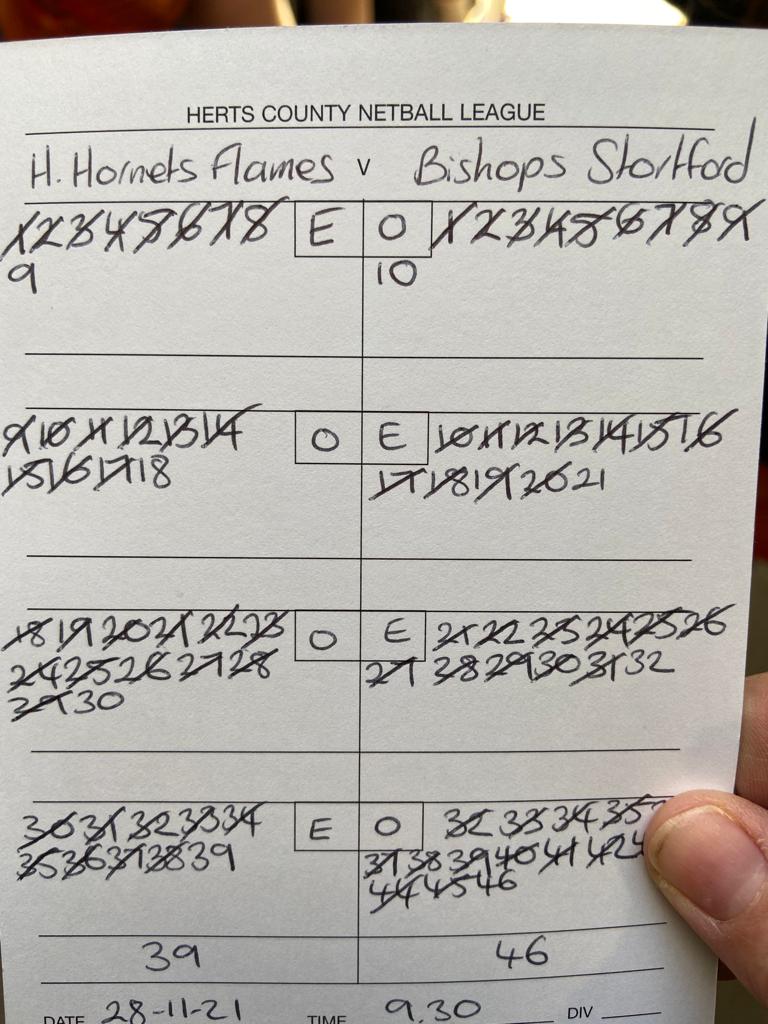 HERTS COUNTY NETBALL LEAGUE
H. Hornets Flames v Bishops Stortford
1 2 3 4 5 6 7 8 E O 1 2 3 4 5 6 7 8 9
9 10
9 10 11 12 13 14 O E 10 11 12 13 14 15 16
15 16 17 18 17 18 19 20 21
18 19 20 21 22 23 O E 21 22 23 24 25 26
24 25 26 27 28 27 28 29 30 31 32
29 30
30 31 32 33 34 E O 32 33 34 35
35 36 37 38 39 37 38 39 40 41 42
44 45 46
39 46
DATE 28-11-21 TIME 9.30 DIV